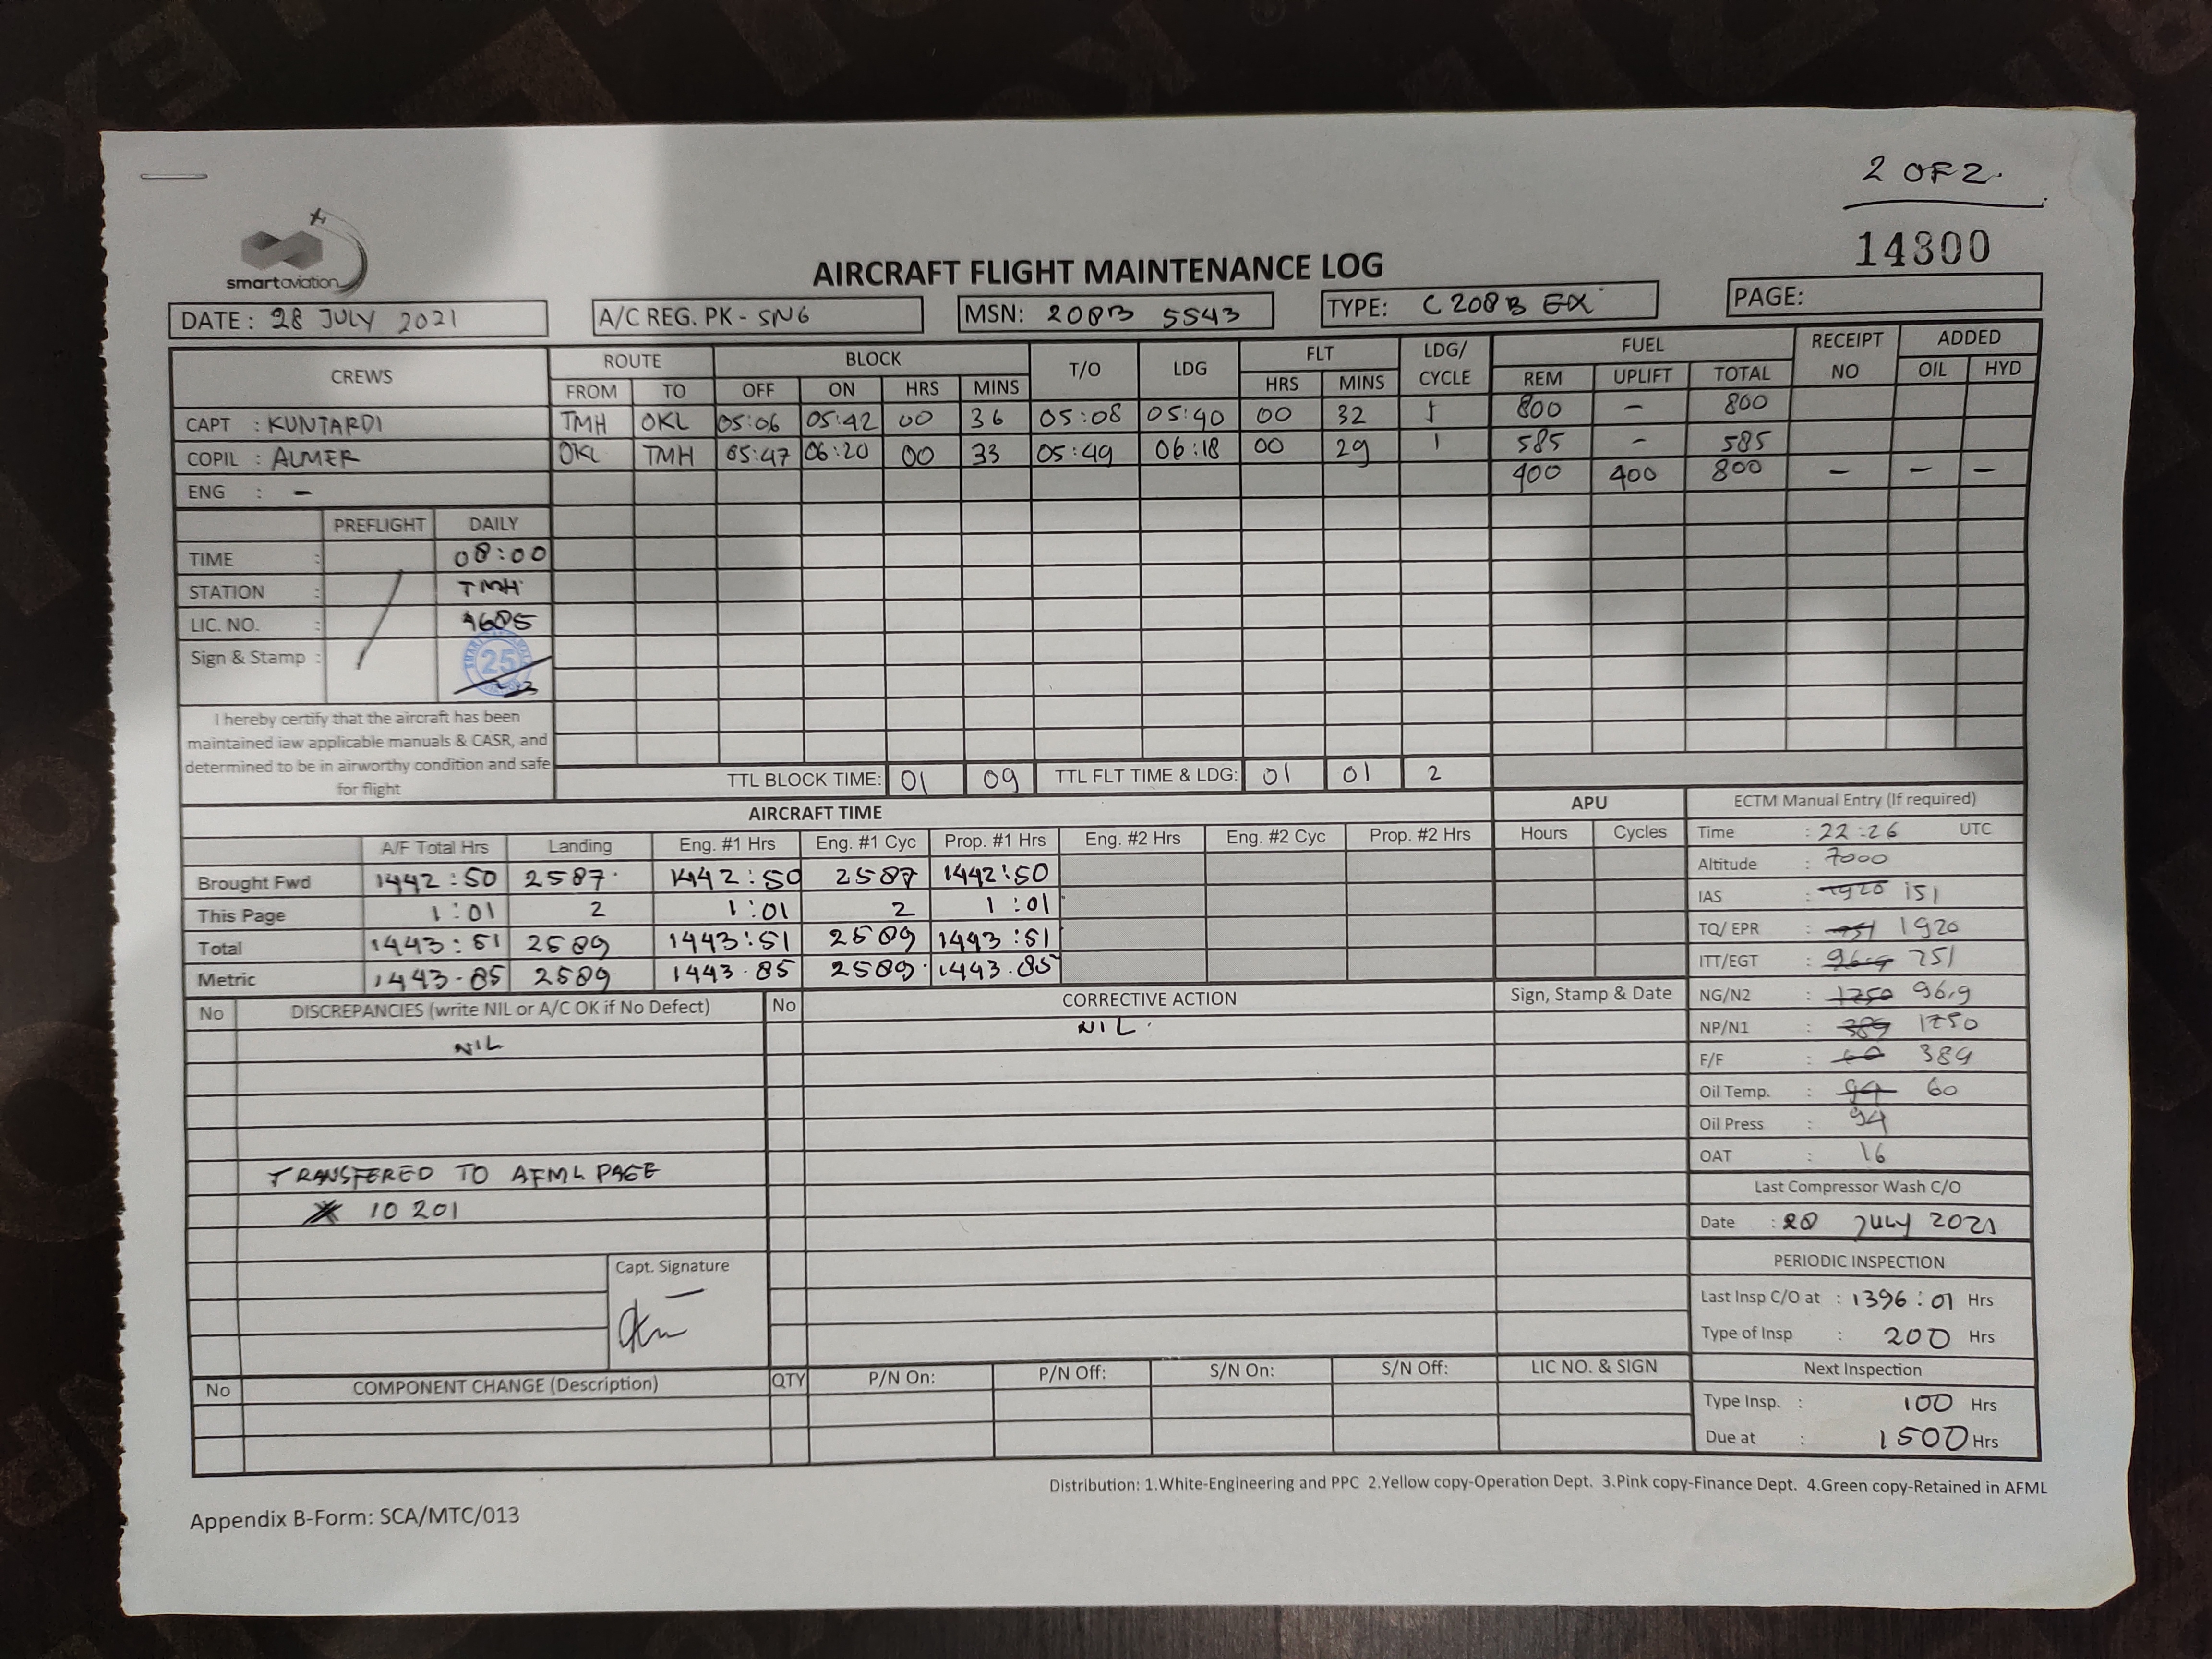 2 OF 2.
14300
smartaviation
AIRCRAFT FLIGHT MAINTENANCE LOG
DATE : 28 JULY 2021 A/C REG. PK - SNG MSN: 208B 5543 TYPE: C 208 B EX PAGE:
CREWS ROUTE BLOCK T/O LDG FLT LDG/ CYCLE FUEL RECEIPT NO ADDED
FROM TO OFF ON HRS MINS HRS MINS REM UPLIFT TOTAL OIL HYD
CAPT : KUNTARDI TMH OKL 05:06 05:42 00 36 05:08 05:40 00 32 1 800 - 800
COPIL : ALMER OKL TMH 05:47 06:20 00 33 05:49 06:18 00 29 1 585 - 585
ENG : - 400 400 800 - - -
PREFLIGHT DAILY
TIME : 08:00
STATION : TMH
LIC. NO. : 4605
Sign & Stamp : 25
I hereby certify that the aircraft has been
maintained iaw applicable manuals & CASR, and
determined to be in airworthy condition and safe
for flight
TTL BLOCK TIME: 01 09 TTL FLT TIME & LDG: 01 01 2
AIRCRAFT TIME APU ECTM Manual Entry (If required)
A/F Total Hrs Landing Eng. #1 Hrs Eng. #1 Cyc Prop. #1 Hrs Eng. #2 Hrs Eng. #2 Cyc Prop. #2 Hrs Hours Cycles
Brought Fwd 1442:50 2587 1442:50 2587 1442:50
This Page 1:01 2 1:01 2 1:01
Total 1443:51 2589 1443:51 2589 1443:51
Metric 1443.85 2589 1443.85 2589 1443.85
Time : 22:26 UTC
Altitude : 7000
IAS : 1920 151
TQ/ EPR : 751 1920
ITT/EGT : 96.9 751
NG/N2 : 1750 96.9
NP/N1 : 389 1750
F/F : 60 389
Oil Temp. : 94 60
Oil Press : 94
OAT : 16
Last Compressor Wash C/O
Date : 28 JULY 2021
PERIODIC INSPECTION
Last Insp C/O at : 1396:01 Hrs
Type of Insp : 200 Hrs
Next Inspection
Type Insp. : 100 Hrs
Due at : 1500 Hrs
No DISCREPANCIES (write NIL or A/C OK if No Defect) No CORRECTIVE ACTION Sign, Stamp & Date
NIL NIL
TRANSFERED TO AFML PAGE
10 201
Capt. Signature
No COMPONENT CHANGE (Description) QTY P/N On: P/N Off: S/N On: S/N Off: LIC NO. & SIGN
Distribution: 1.White-Engineering and PPC 2.Yellow copy-Operation Dept. 3.Pink copy-Finance Dept. 4.Green copy-Retained in AFML
Appendix B-Form: SCA/MTC/013